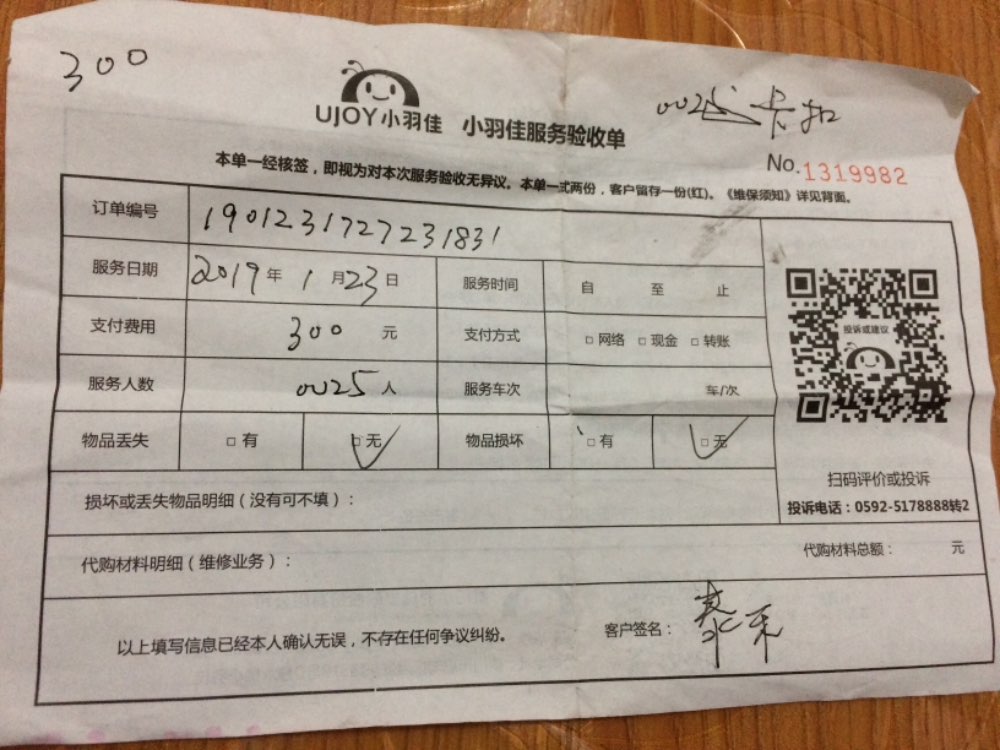 300
UJOY小羽佳 小羽佳服务验收单
0025 卡扣
No.1319982
本单一经核签，即视为对本次服务验收无异议。本单一式两份，客户留存一份(红)。《维保须知》详见背面。
订单编号 1901231727231831
服务日期 2019年1月23日 服务时间 自 至 止
支付费用 300 元 支付方式 □网络 □现金 □转账
服务人数 0025 人 服务车次 车/次
物品丢失 □有 □无 物品损坏 □有 □无
投诉或建议
扫码评价或投诉
投诉电话：0592-5178888转2
损坏或丢失物品明细（没有可不填）：
代购材料明细（维修业务）： 代购材料总额： 元
以上填写信息已经本人确认无误，不存在任何争议纠纷。 客户签名：